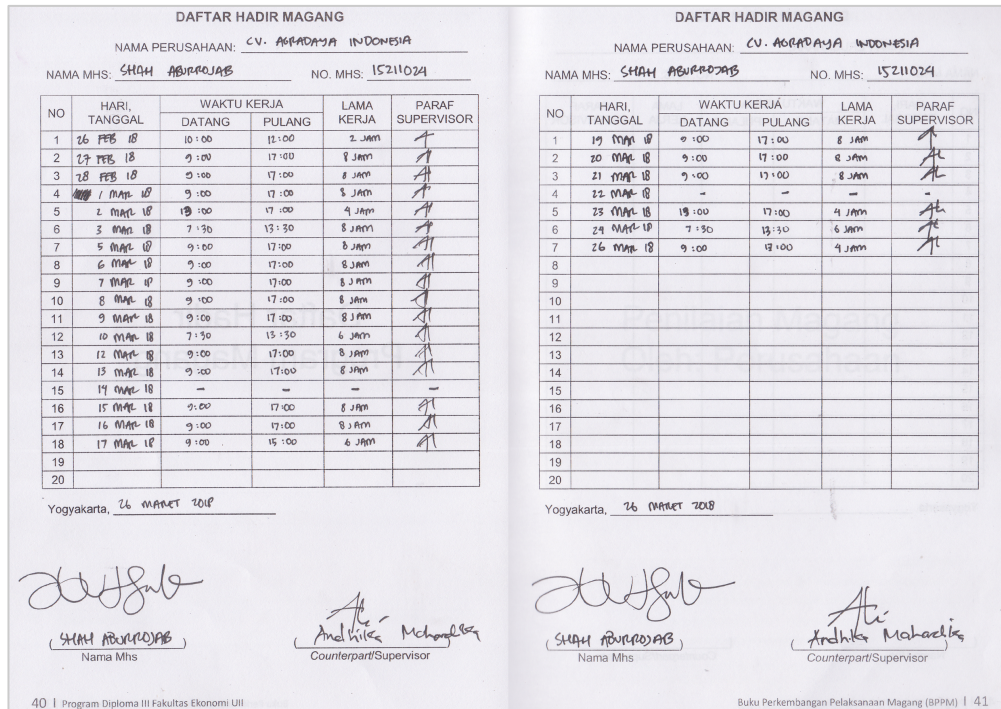 DAFTAR HADIR MAGANG
NAMA PERUSAHAAN: CV. AGRADAYA INDONESIA
NAMA MHS: SHAH ABURROJAB NO. MHS: 15211024
NO HARI, TANGGAL WAKTU KERJA LAMA KERJA PARAF SUPERVISOR
DATANG PULANG
1 26 FEB 18 10:00 12:00 2 JAM
2 27 FEB 18 9:00 17:00 8 JAM
3 28 FEB 18 9:00 17:00 8 JAM
4 1 MAR 18 9:00 17:00 8 JAM
5 2 MAR 18 13:00 17:00 4 JAM
6 3 MAR 18 7:30 13:30 6 JAM
7 5 MAR 18 9:00 17:00 8 JAM
8 6 MAR 18 9:00 17:00 8 JAM
9 7 MAR 18 9:00 17:00 8 JAM
10 8 MAR 18 9:00 17:00 8 JAM
11 9 MAR 18 9:00 17:00 8 JAM
12 10 MAR 18 7:30 13:30 6 JAM
13 12 MAR 18 9:00 17:00 8 JAM
14 13 MAR 18 9:00 17:00 8 JAM
15 14 MAR 18 - - - -
16 15 MAR 18 9:00 17:00 8 JAM
17 16 MAR 18 9:00 17:00 8 JAM
18 17 MAR 18 9:00 15:00 6 JAM
19
20
Yogyakarta, 26 MARET 2018
(SHAH ABURROJAB) (Andhika Mahardika)
Nama Mhs Counterpart/Supervisor
40 | Program Diploma III Fakultas Ekonomi UII
DAFTAR HADIR MAGANG
NAMA PERUSAHAAN: CV. AGRADAYA INDONESIA
NAMA MHS: SHAH ABURROJAB NO. MHS: 15211024
NO HARI, TANGGAL WAKTU KERJA LAMA KERJA PARAF SUPERVISOR
DATANG PULANG
1 19 MAR 18 9:00 17:00 8 JAM
2 20 MAR 18 9:00 17:00 8 JAM
3 21 MAR 18 9:00 17:00 8 JAM
4 22 MAR 18 - - - -
5 23 MAR 18 13:00 17:00 4 JAM
6 24 MAR 18 7:30 13:30 6 JAM
7 26 MAR 18 9:00 13:00 4 JAM
8
9
10
11
12
13
14
15
16
17
18
19
20
Yogyakarta, 26 MARET 2018
(SHAH ABURROJAB) (Andhika Mahardika)
Nama Mhs Counterpart/Supervisor
Buku Perkembangan Pelaksanaan Magang (BPPM) | 41